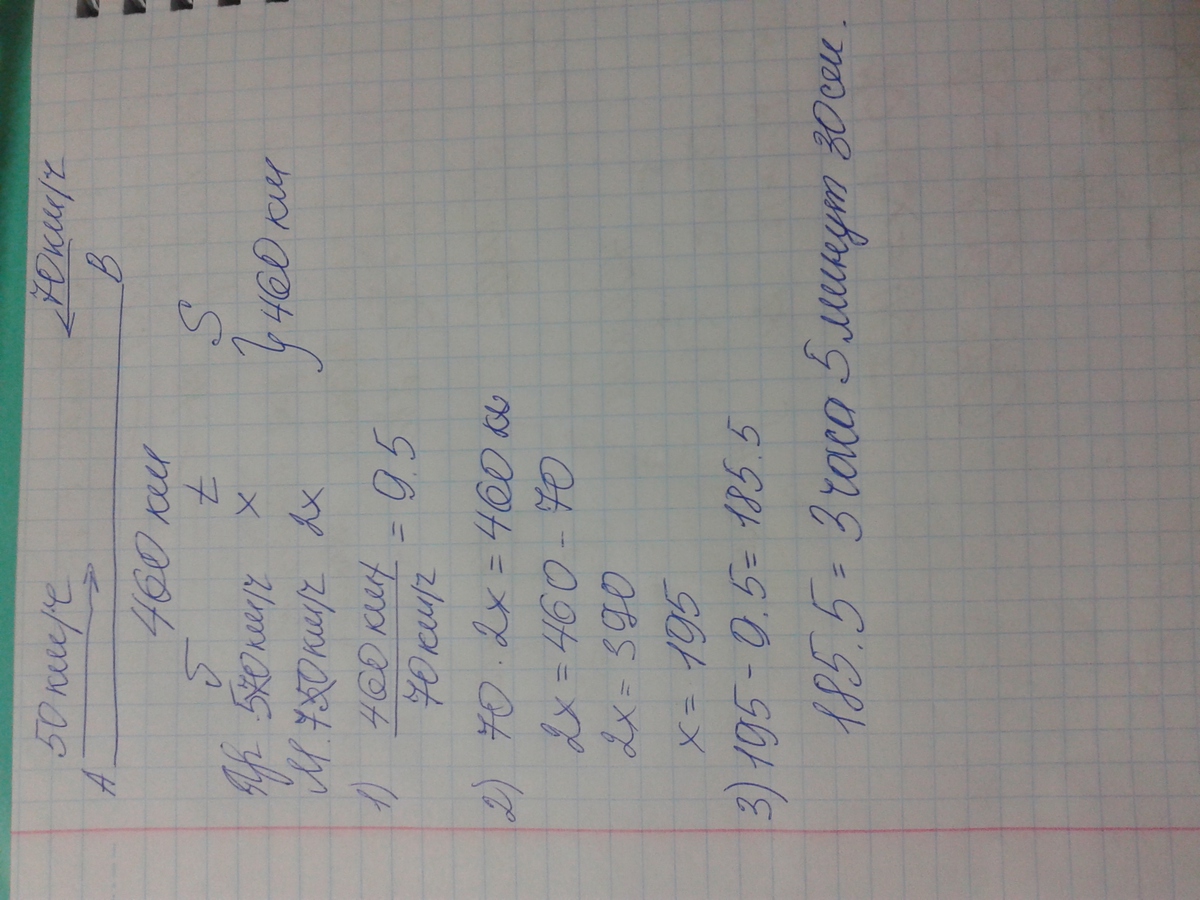 50 км/ч 70 км/ч
А В
460 км
S t S
Гр. 50 км/ч x } 460 км
М. 70 км/ч 2x
1) 460 км / 70 км/ч = 9.5
2) 70 · 2x = 460 км
2x = 460 - 70
2x = 390
x = 195
3) 195 - 9.5 = 185.5
185.5 = 3 часа 5 минут 30 сек.